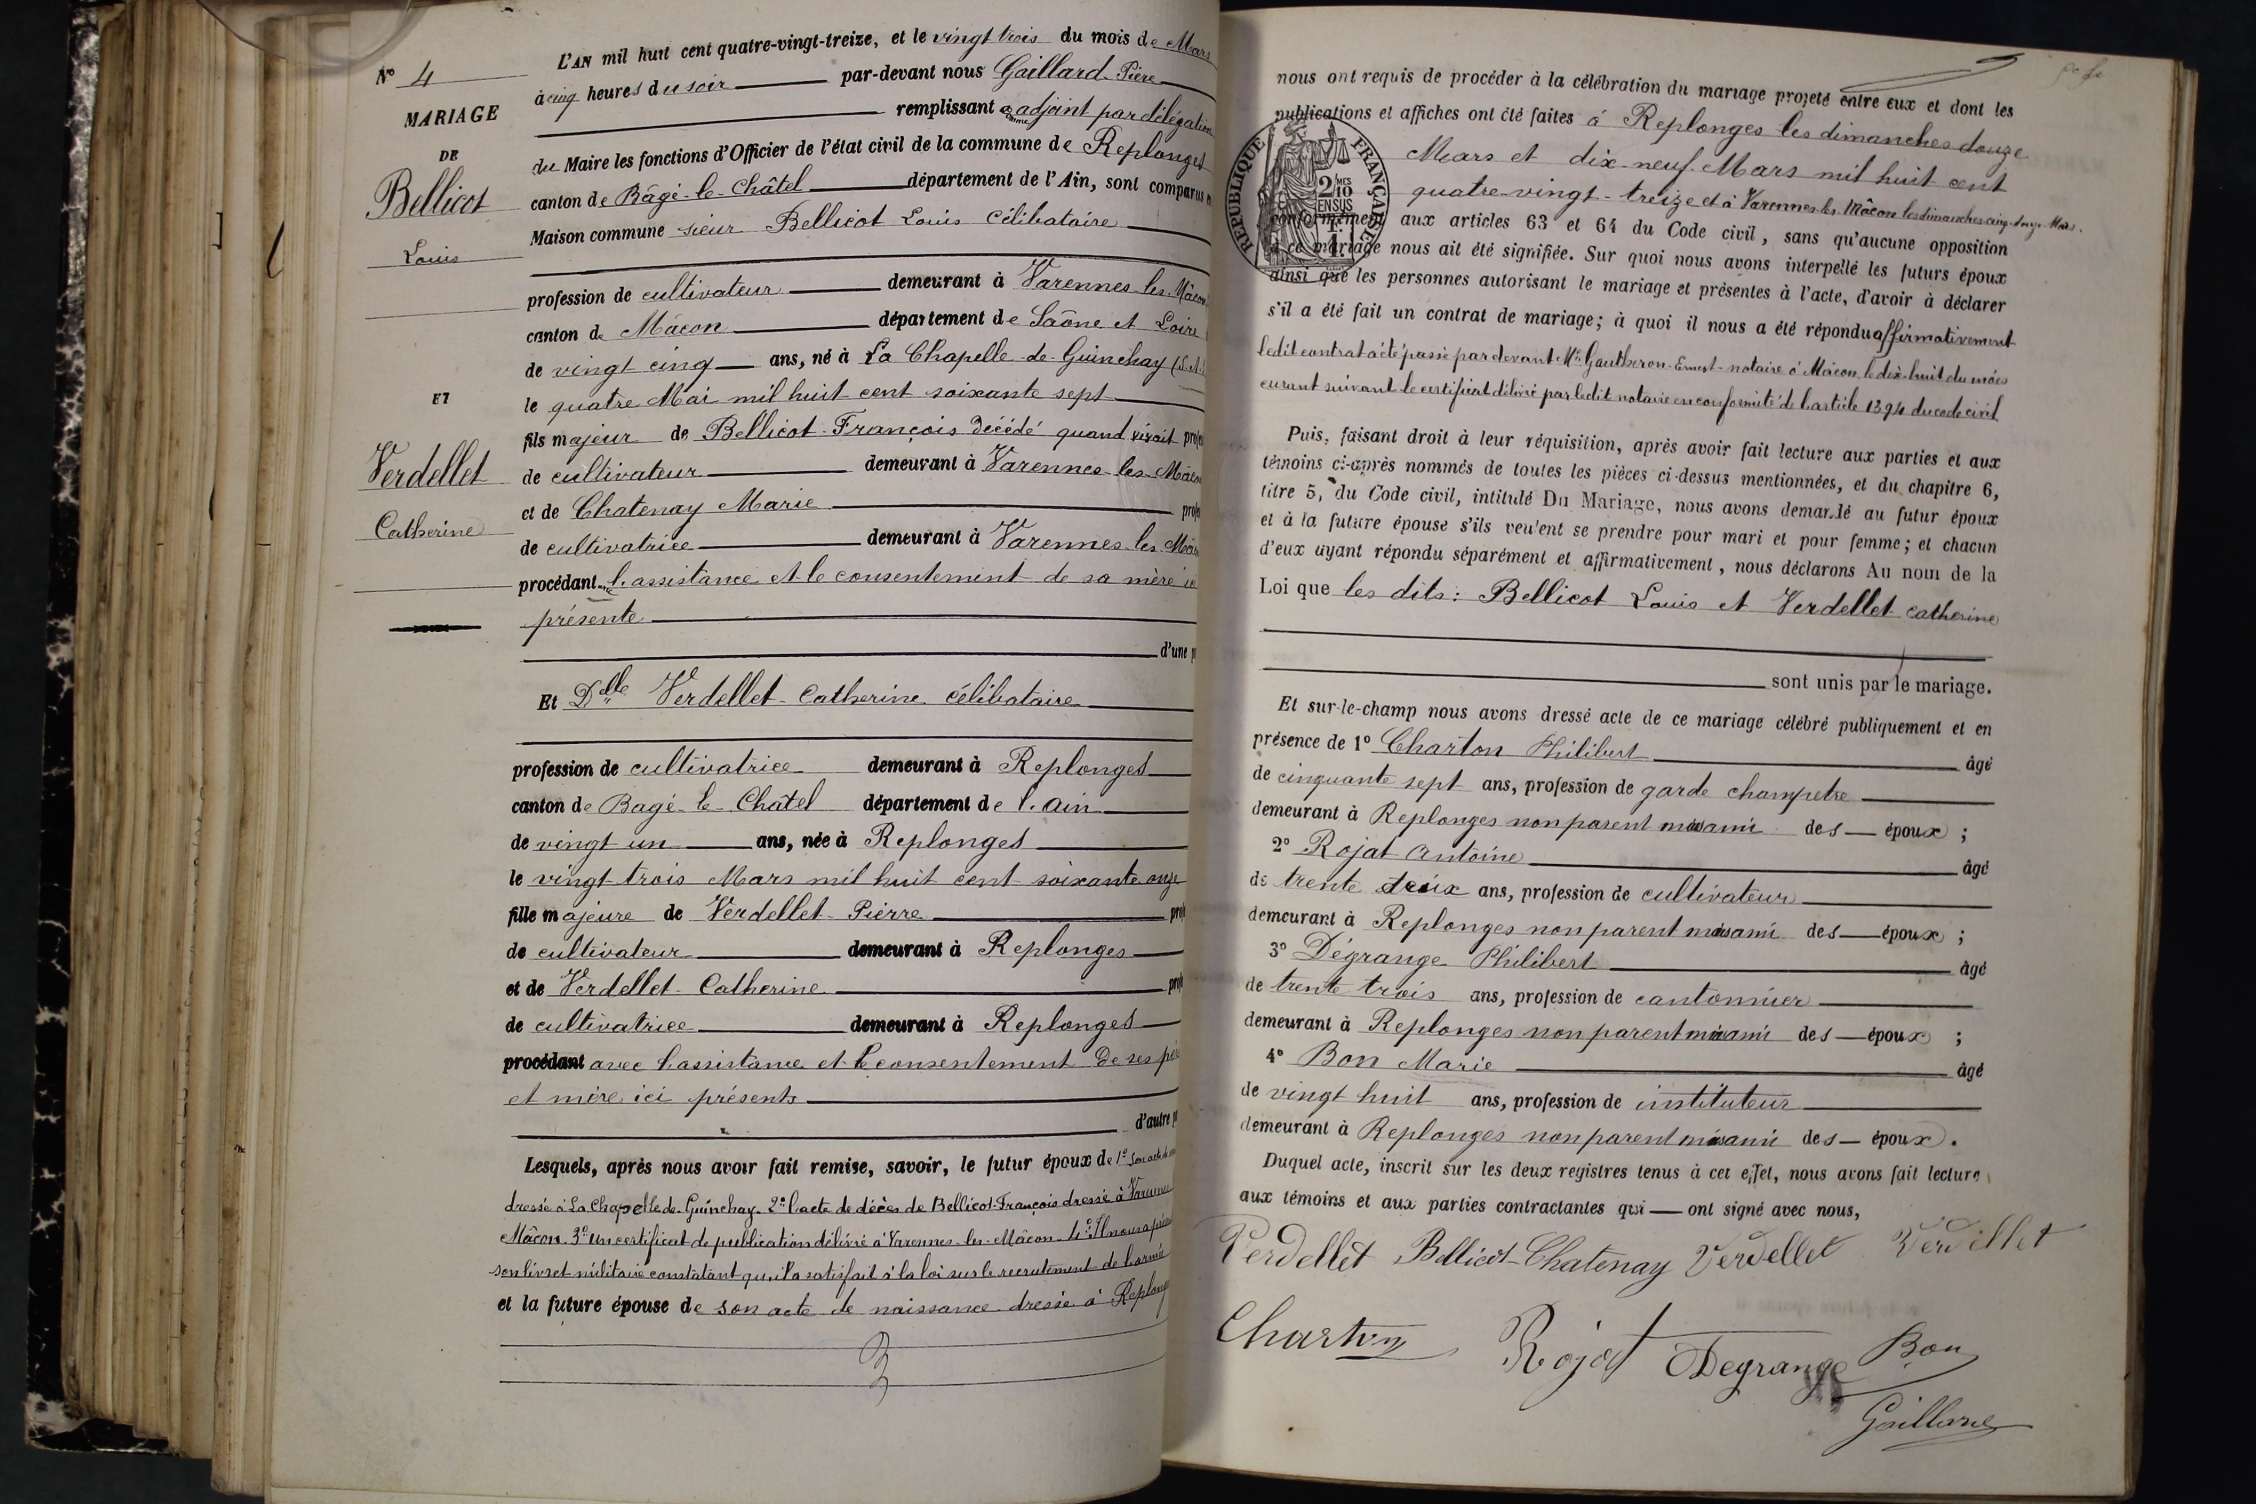 N° 4
MARIAGE
DE
Bellicot
Louis
ET
Verdellet
Catherine
L'AN mil huit cent quatre-vingt-treize, et le vingt trois du mois de Mars
à cinq heures du soir par-devant nous Gaillard Pière
remplissant comme adjoint par délégation
du Maire les fonctions d'Officier de l'état civil de la commune de Replonges
canton de Bâgé-le-Châtel département de l'Ain, sont comparus en
Maison commune sieur Bellicot Louis célibataire
profession de cultivateur demeurant à Varennes-les-Mâcon
canton de Mâcon département de Saône et Loire
de vingt cinq ans, né à La Chapelle-de-Guinchay (S.-L.
le quatre Mai mil huit cent soixante sept
fils majeur de Bellicot François décédé quand vivait profes
de cultivateur demeurant à Varennes-les-Mâcon
et de Chatenay Marie profes
de cultivatrice demeurant à Varennes-les-Mâcon
procédant avec l'assistance et le consentement de sa mère ici
présente
d'une p
Et Delle Verdellet Catherine célibataire
profession de cultivatrice demeurant à Replonges
canton de Bagé-le-Châtel département de l'ain
de vingt un ans, née à Replonges
le vingt trois Mars mil huit cent soixante onze
fille majeure de Verdellet Pierre prof
de cultivateur demeurant à Replonges
et de Verdellet Catherine prof
de cultivatrice demeurant à Replonges
procédant avec l'assistance et le consentement de ses père
et mère ici présents
d'autre p
Lesquels, après nous avoir fait remise, savoir, le futur époux de 1° son acte de
dressé à La Chapelle-de-Guinchay. 2° l'acte de décès de Bellicot François dressé à Varennes
Mâcon. 3° un certificat de publication délivré à Varennes-les-Mâcon 4° Il nous a présenté
son livret militaire constatant qu'il a satisfait à la loi sur le recrutement de l'armée
et la future épouse de son acte de naissance dressé à Replonges
nous ont requis de procéder à la célébration du mariage projeté entre eux et dont les
publications et affiches ont été faites à Replonges les dimanches douze
Mars et dix-neuf Mars mil huit cent
quatre-vingt-treize et à Varennes-les-Mâcon les dimanches cinq, douze Mars.
conformément aux articles 63 et 64 du Code civil, sans qu'aucune opposition
à ce mariage nous ait été signifiée. Sur quoi nous avons interpellé les futurs époux
ainsi que les personnes autorisant le mariage et présentes à l'acte, d'avoir à déclarer
s'il a été fait un contrat de mariage; à quoi il nous a été répondu affirmativement
ledit contrat a été passé par devant Me Gautheron Ernest notaire à Mâcon le dix huit du mois
courant suivant le certificat délivré par ledit notaire en conformité de l'article 1394 du code civil
RÉPUBLIQUE FRANÇAISE
2/10 MES
EN SUS
Puis, faisant droit à leur réquisition, après avoir fait lecture aux parties et aux
témoins ci-après nommés de toutes les pièces ci-dessus mentionnées, et du chapitre 6,
titre 5, du Code civil, intitulé Du Mariage, nous avons demandé au futur époux
et à la future épouse s'ils veulent se prendre pour mari et pour femme; et chacun
d'eux ayant répondu séparément et affirmativement, nous déclarons Au nom de la
Loi que les dits: Bellicot Louis et Verdellet Catherine
sont unis par le mariage.
Et sur-le-champ nous avons dressé acte de ce mariage célébré publiquement et en
présence de 1° Charton Philibert âgé
de cinquante sept ans, profession de garde champetre
demeurant à Replonges non parent mais ami des époux ;
2° Rojat Antoine âgé
de trente deux ans, profession de cultivateur
demeurant à Replonges non parent mais ami des époux ;
3° Dégrange Philibert âgé
de trente trois ans, profession de cantonnier
demeurant à Replonges non parent mais ami des époux ;
4° Bon Marie âgé
de vingt huit ans, profession de instituteur
demeurant à Replonges non parent mais ami des époux.
Duquel acte, inscrit sur les deux registres tenus à cet effet, nous avons fait lecture
aux témoins et aux parties contractantes qui ont signé avec nous,
Verdellet Bellicot Chatenay Verdellet Verdellet
Charton Rojat Degrange Bon
Gaillard